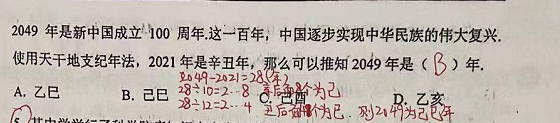 2049 年是新中国成立 100 周年.这一百年，中国逐步实现中华民族的伟大复兴.
使用天干地支纪年法，2021 年是辛丑年，那么可以推知 2049 年是（ B ）年.
2049-2021=28(年)
A. 乙巳 B. 己巳 C. 己酉 D. 乙亥
28÷10=2…8 辛后面8个为己
28÷12=2…4 丑后面4个为巳. 则2049为己巳年